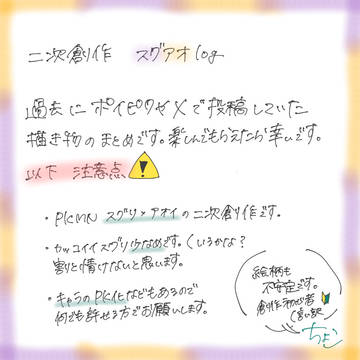 二次創作 スグアオ log
過去にポイピクやXで投稿していた
描き物のまとめです。楽しんでもらえたら幸いです。
以下 注意点
・PKMN スグリ×アオイの二次創作です。
・カッコイイスグリ少なめです。(いるかな?
割と情けないと思います。
・キャラのPK化などもあるので
何でも許せる方でお願いします。
絵柄も
不安定です。
創作初心者
(言い訳
ちよこ